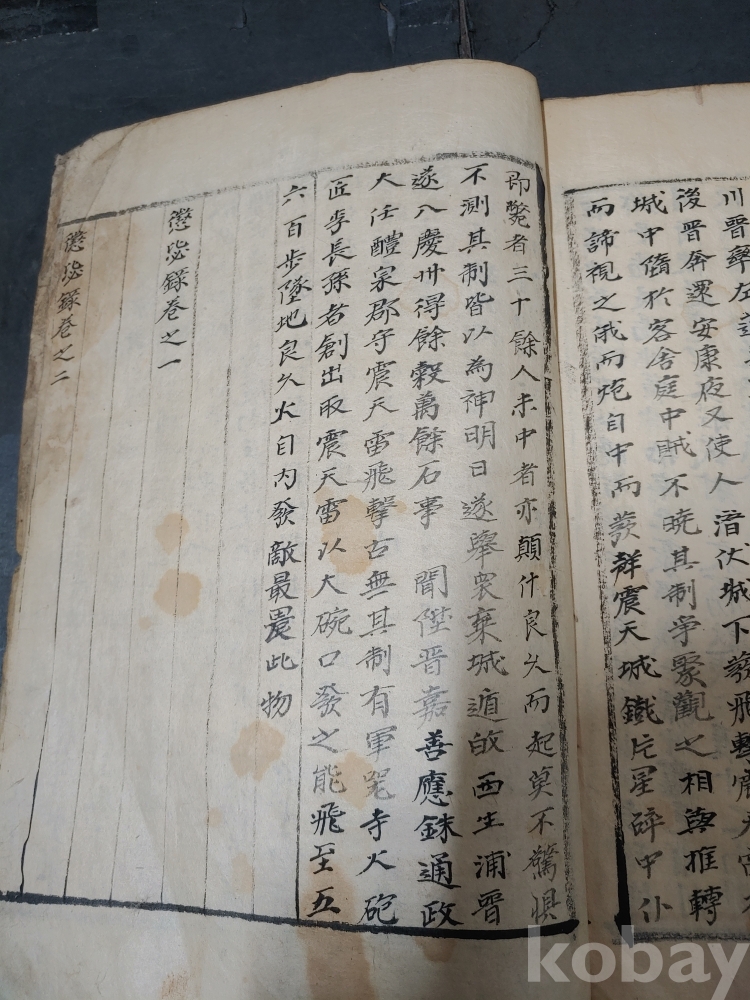 後晋奔還安康夜又使人潜伏城下發飛擊
城中隨於客舍庭中賊不曉其制爭聚觀之相與推轉
而諦視之俄而炮自中而發聲震天城鐵片星碎中仆
即斃者三十餘人未中者亦顛什良久而起莫不驚惧
不測其制皆以為神明日遂擧衆棄城遁敀西生浦晋
遂入慶州得餘穀萬餘石事 聞陞晋嘉善應銖通政
大任醴泉郡守震天雷飛擊古無其制有軍器寺火砲
匠李長孫者創出取震天雷以大碗口發之能飛至五
六百步墜地良久火自內發敵最畏此物
懲毖録巻之一
懲毖録巻之二
kobay